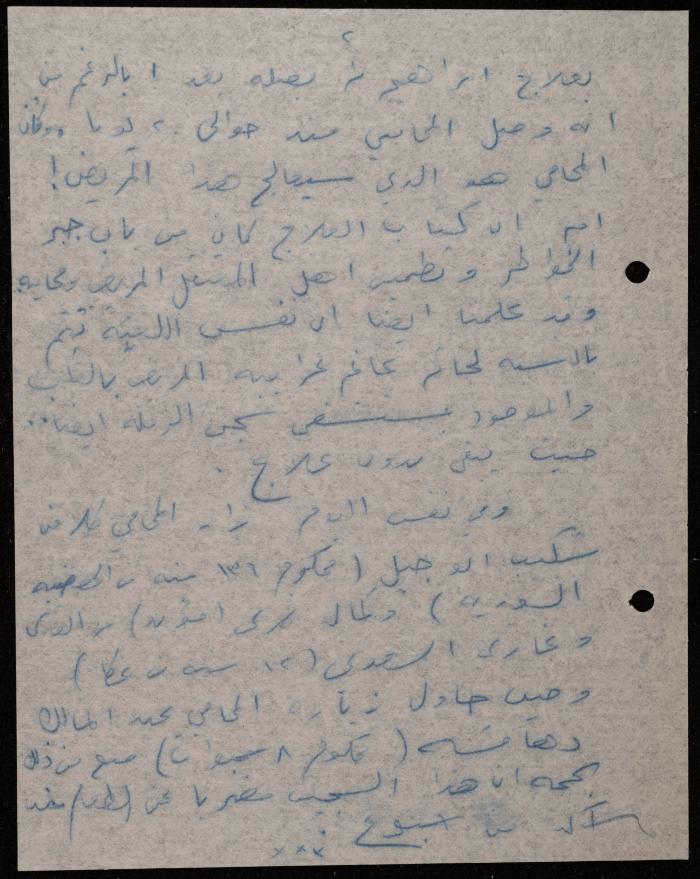 ٢
بعلاج ابراهيم لم يصله بعد ! بالرغم من
انه وصل المحامي منذ حوالي ٢٠ يوما .. وكأن
المحامي هو الذي سيعالج هذا المريض !
اي ان كتاب العلاج كان من باب جبر
الخواطر وتطمين اهل المعتقل المريض ومحاميه
وقد علمنا ايضا ان نفس اللعبة تتم
بالنسبة لحاتم غانم غرايبه المريض بالقلب
والموجود بمستشفى سجن الرمله ايضا ..
حيث يبقى بدون علاج .
وفي نفس اليوم زار المحامي كلا من
شكيب ابو جبل ( محكوم ١٣١ سنه من الهضبه
السوريه ) وكمال
وغازي السعدي ( ١٢ سنه من عكا )
وحين حاول زيارة المحامي عبد المالك
دهامشه ( محكوم ٨ سنوات ) منع من ذلك
بحجه ان هذا السجين مضربا عن الطعام منذ
اكثر من اسبوع .
* * *